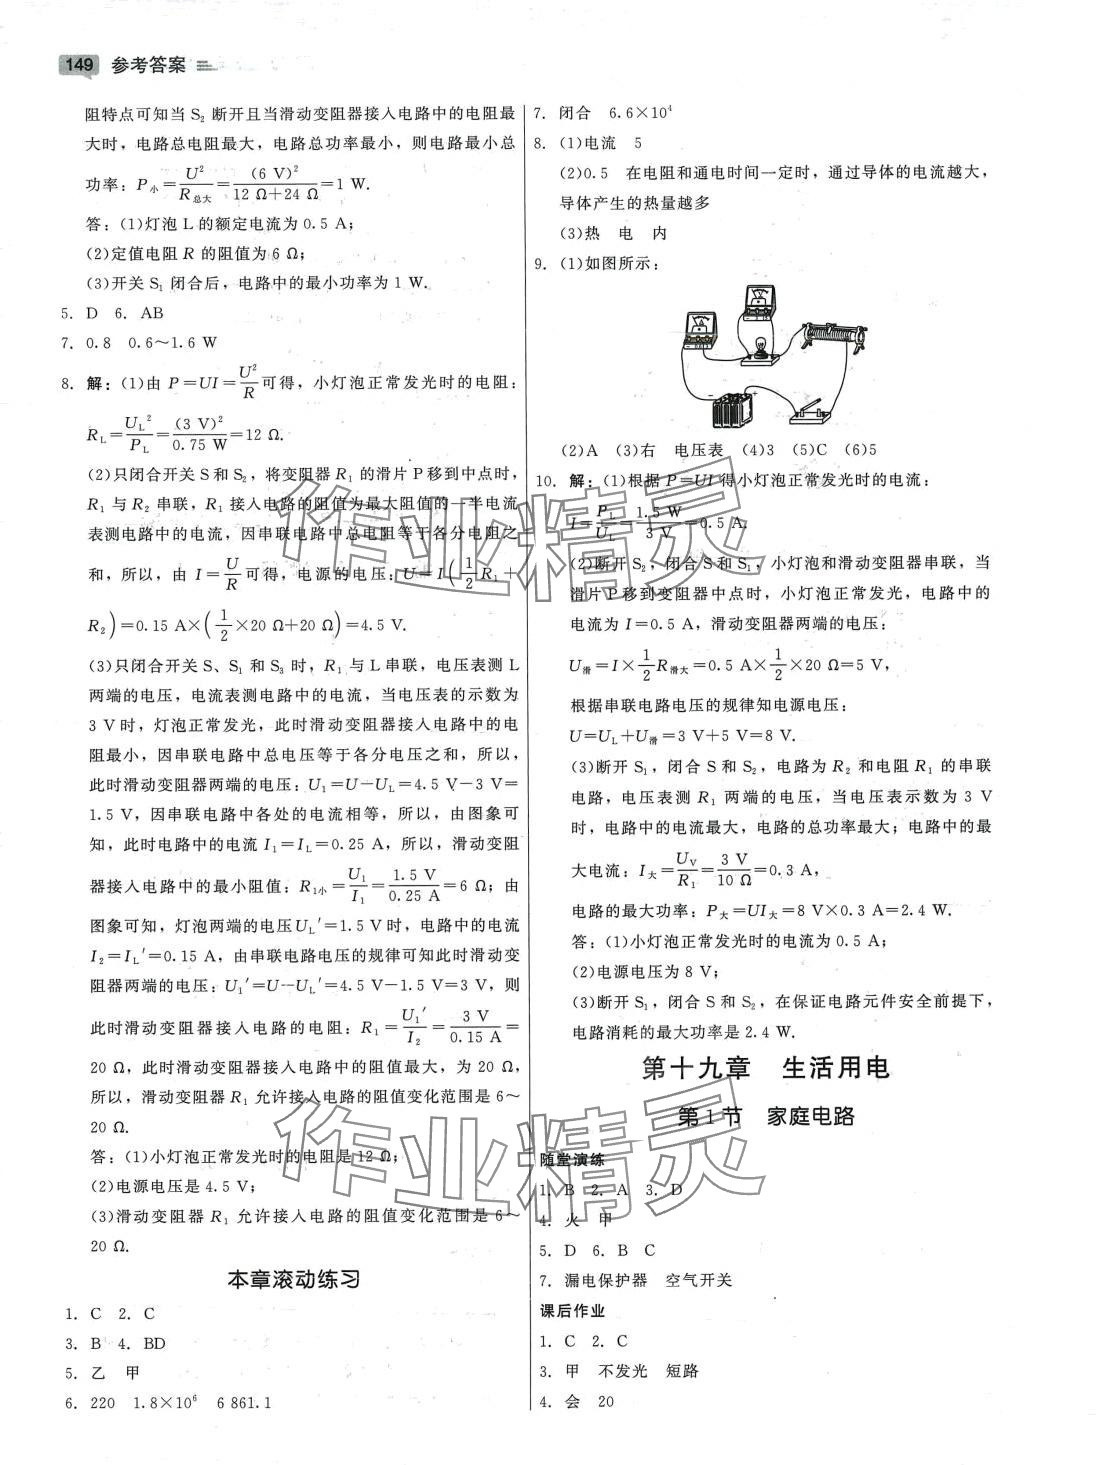 149 参考答案
阻特点可知当 S₂ 断开且当滑动变阻器接入电路中的电阻最
大时，电路总电阻最大，电路总功率最小，则电路最小总
功率：P小=U²/R总大=(6 V)²/(12 Ω+24 Ω)=1 W.
答：(1)灯泡 L 的额定电流为 0.5 A；
(2)定值电阻 R 的阻值为 6 Ω；
(3)开关 S₁ 闭合后，电路中的最小功率为 1 W.
5. D 6. AB
7. 0.8 0.6～1.6 W
8. 解：(1)由 P=UI=U²/R可得，小灯泡正常发光时的电阻：
R_L=U_L²/P_L=(3 V)²/0.75 W=12 Ω.
(2)只闭合开关 S 和 S₂，将变阻器 R₁ 的滑片 P 移到中点时，
R₁ 与 R₂ 串联，R₁ 接入电路的阻值为最大阻值的一半电流
表测电路中的电流，因串联电路中总电阻等于各分电阻之
和，所以，由 I=U/R可得，电源的电压：U=I(1/2 R₁+
R₂)=0.15 A×(1/2×20 Ω+20 Ω)=4.5 V.
(3)只闭合开关 S、S₁ 和 S₃ 时，R₁ 与 L 串联，电压表测 L
两端的电压，电流表测电路中的电流，当电压表的示数为
3 V 时，灯泡正常发光，此时滑动变阻器接入电路中的电
阻最小，因串联电路中总电压等于各分电压之和，所以，
此时滑动变阻器两端的电压：U₁=U－U_L=4.5 V－3 V=
1.5 V，因串联电路中各处的电流相等，所以，由图象可
知，此时电路中的电流 I₁=I_L=0.25 A，所以，滑动变阻
器接入电路中的最小阻值：R₁小=U₁/I₁=1.5 V/0.25 A=6 Ω；由
图象可知，灯泡两端的电压U_L′=1.5 V时，电路中的电流
I₂=I_L′=0.15 A，由串联电路电压的规律可知此时滑动变
阻器两端的电压：U₁′=U－U_L′=4.5 V－1.5 V=3 V，则
此时滑动变阻器接入电路的电阻：R₁=U₁′/I₂=3 V/0.15 A=
20 Ω，此时滑动变阻器接入电路中的阻值最大，为 20 Ω，
所以，滑动变阻器 R₁ 允许接入电路的阻值变化范围是 6～
20 Ω.
答：(1)小灯泡正常发光时的电阻是 12 Ω；
(2)电源电压是 4.5 V；
(3)滑动变阻器 R₁ 允许接入电路的阻值变化范围是 6～
20 Ω.
本章滚动练习
1. C 2. C
3. B 4. BD
5. 乙 甲
6. 220 1.8×10⁶ 6 861.1
7. 闭合 6.6×10⁴
8. (1)电流 5
(2)0.5 在电阻和通电时间一定时，通过导体的电流越大，
导体产生的热量越多
(3)热 电 内
9. (1)如图所示：
(2)A (3)右 电压表 (4)3 (5)C (6)5
10. 解：(1)根据 P=UI 得小灯泡正常发光时的电流：
I=P_L/U_L=1.5 W/3 V=0.5 A.
(2)断开 S₂，闭合 S 和 S₁，小灯泡和滑动变阻器串联，当
滑片 P 移到变阻器中点时，小灯泡正常发光，电路中的
电流为 I=0.5 A，滑动变阻器两端的电压：
U滑=I×1/2 R滑大=0.5 A×1/2×20 Ω=5 V，
根据串联电路电压的规律知电源电压：
U=U_L+U滑=3 V+5 V=8 V.
(3)断开 S₁，闭合 S 和 S₂，电路为 R₂ 和电阻 R₁ 的串联
电路，电压表测 R₁ 两端的电压，当电压表示数为 3 V
时，电路中的电流最大，电路的总功率最大；电路中的最
大电流：I大=U_V/R₁=3 V/10 Ω=0.3 A，
电路的最大功率：P大=UI大=8 V×0.3 A=2.4 W.
答：(1)小灯泡正常发光时的电流为 0.5 A；
(2)电源电压为 8 V；
(3)断开 S₁，闭合 S 和 S₂，在保证电路元件安全前提下，
电路消耗的最大功率是 2.4 W.
第十九章 生活用电
第 1 节 家庭电路
随堂演练
1. B 2. A 3. D
4. 火 甲
5. D 6. B C
7. 漏电保护器 空气开关
课后作业
1. C 2. C
3. 甲 不发光 短路
4. 会 20
作业精灵
作业精灵